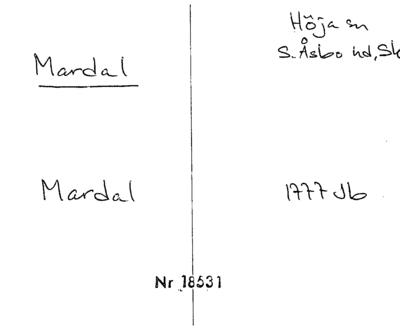 Mardal
Höja sn
S. Åsbo hd, Sk
Mardal
1777 Jb
Nr 18531